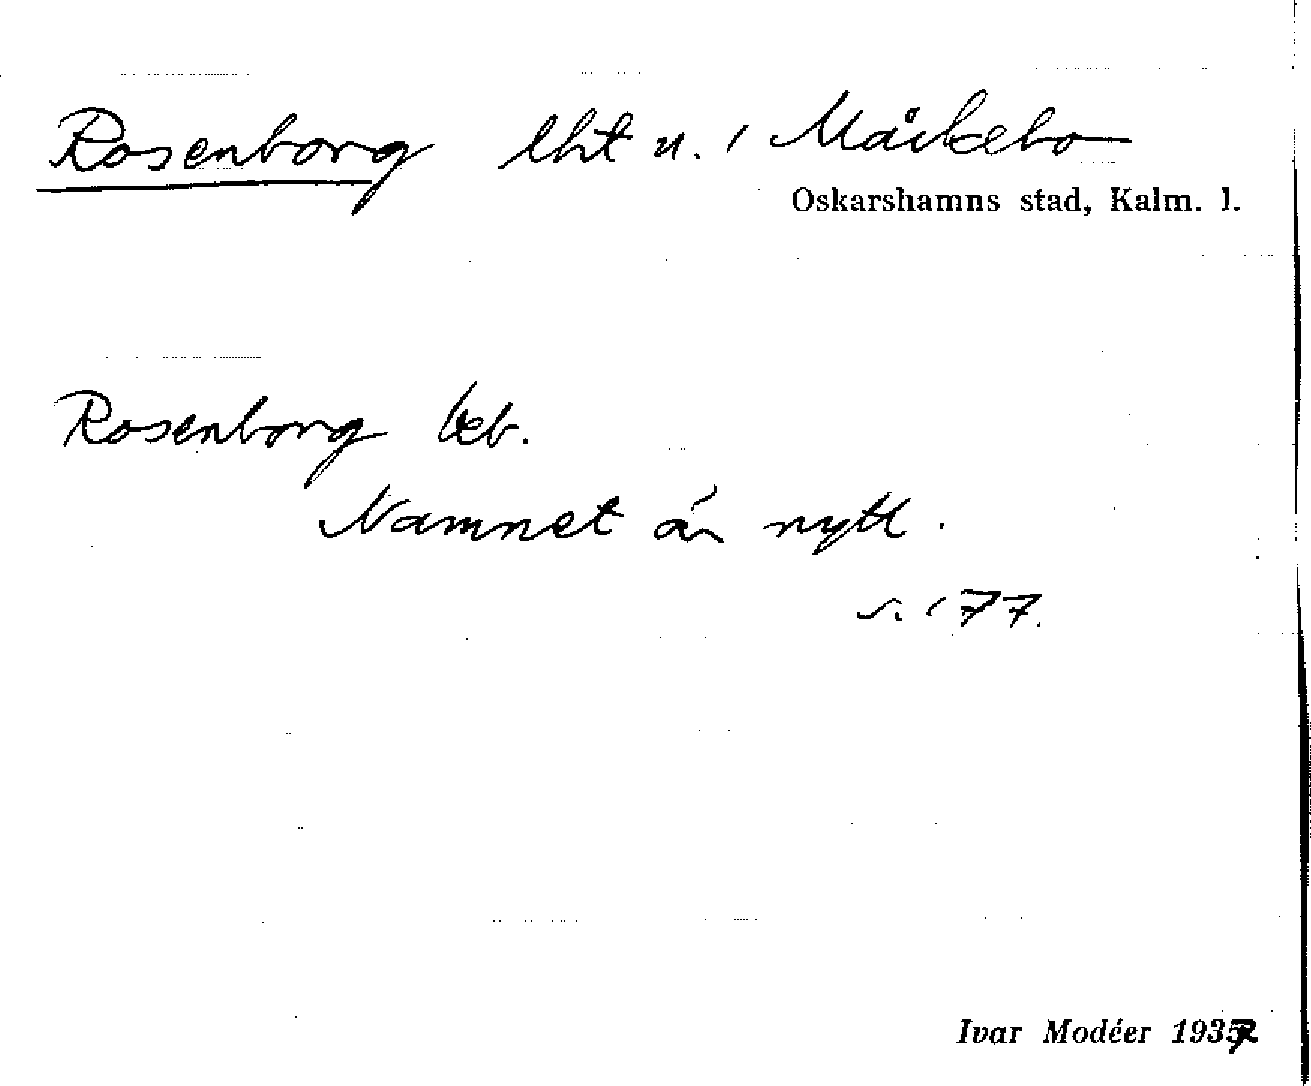 Rosenborg lht u. / Måckebo
Oskarshamns stad, Kalm. l.
Rosenborg beb.
Namnet är nytt.
s. 177.
Ivar Modéer 1937